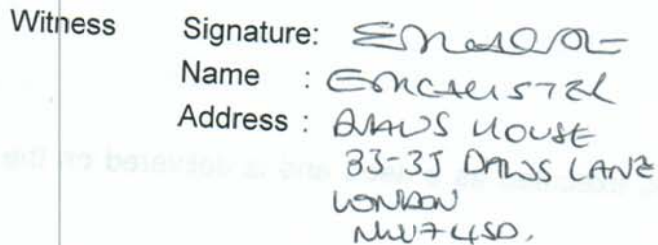 Witness Signature:
Name : E MCALISTER
Address : DAWS HOUSE
33-35 DAWS LANE
LONDON
NW7 4SD.